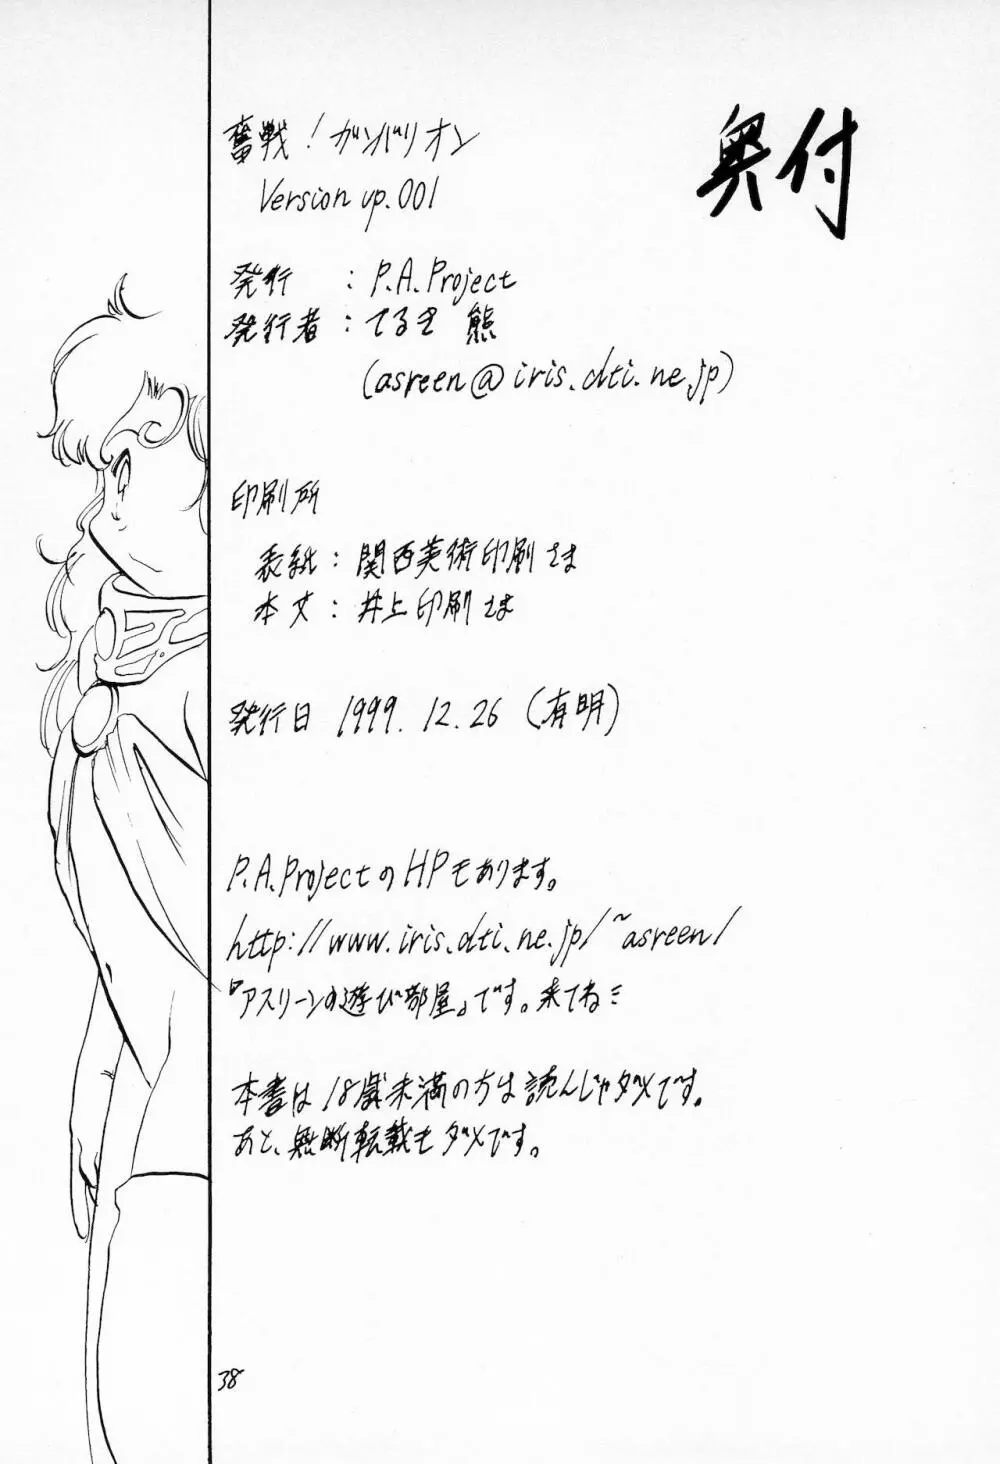 奥付
奮戦!ガンバリオン
Version up.001
発行 : P.A.Project
発行者 : てるき 熊
(asreen@iris.dti.ne.jp)
印刷所
表紙 : 関西美術印刷さま
本文 : 井上印刷さま
発行日 1999.12.26 (有明)
P.A.ProjectのHPもあります。
http://www.iris.dti.ne.jp/~asreen/
『アスリーンの遊び部屋』です。来てね
本書は18歳未満の方は読んじゃダメです。
あと、無断転載もダメです。
38